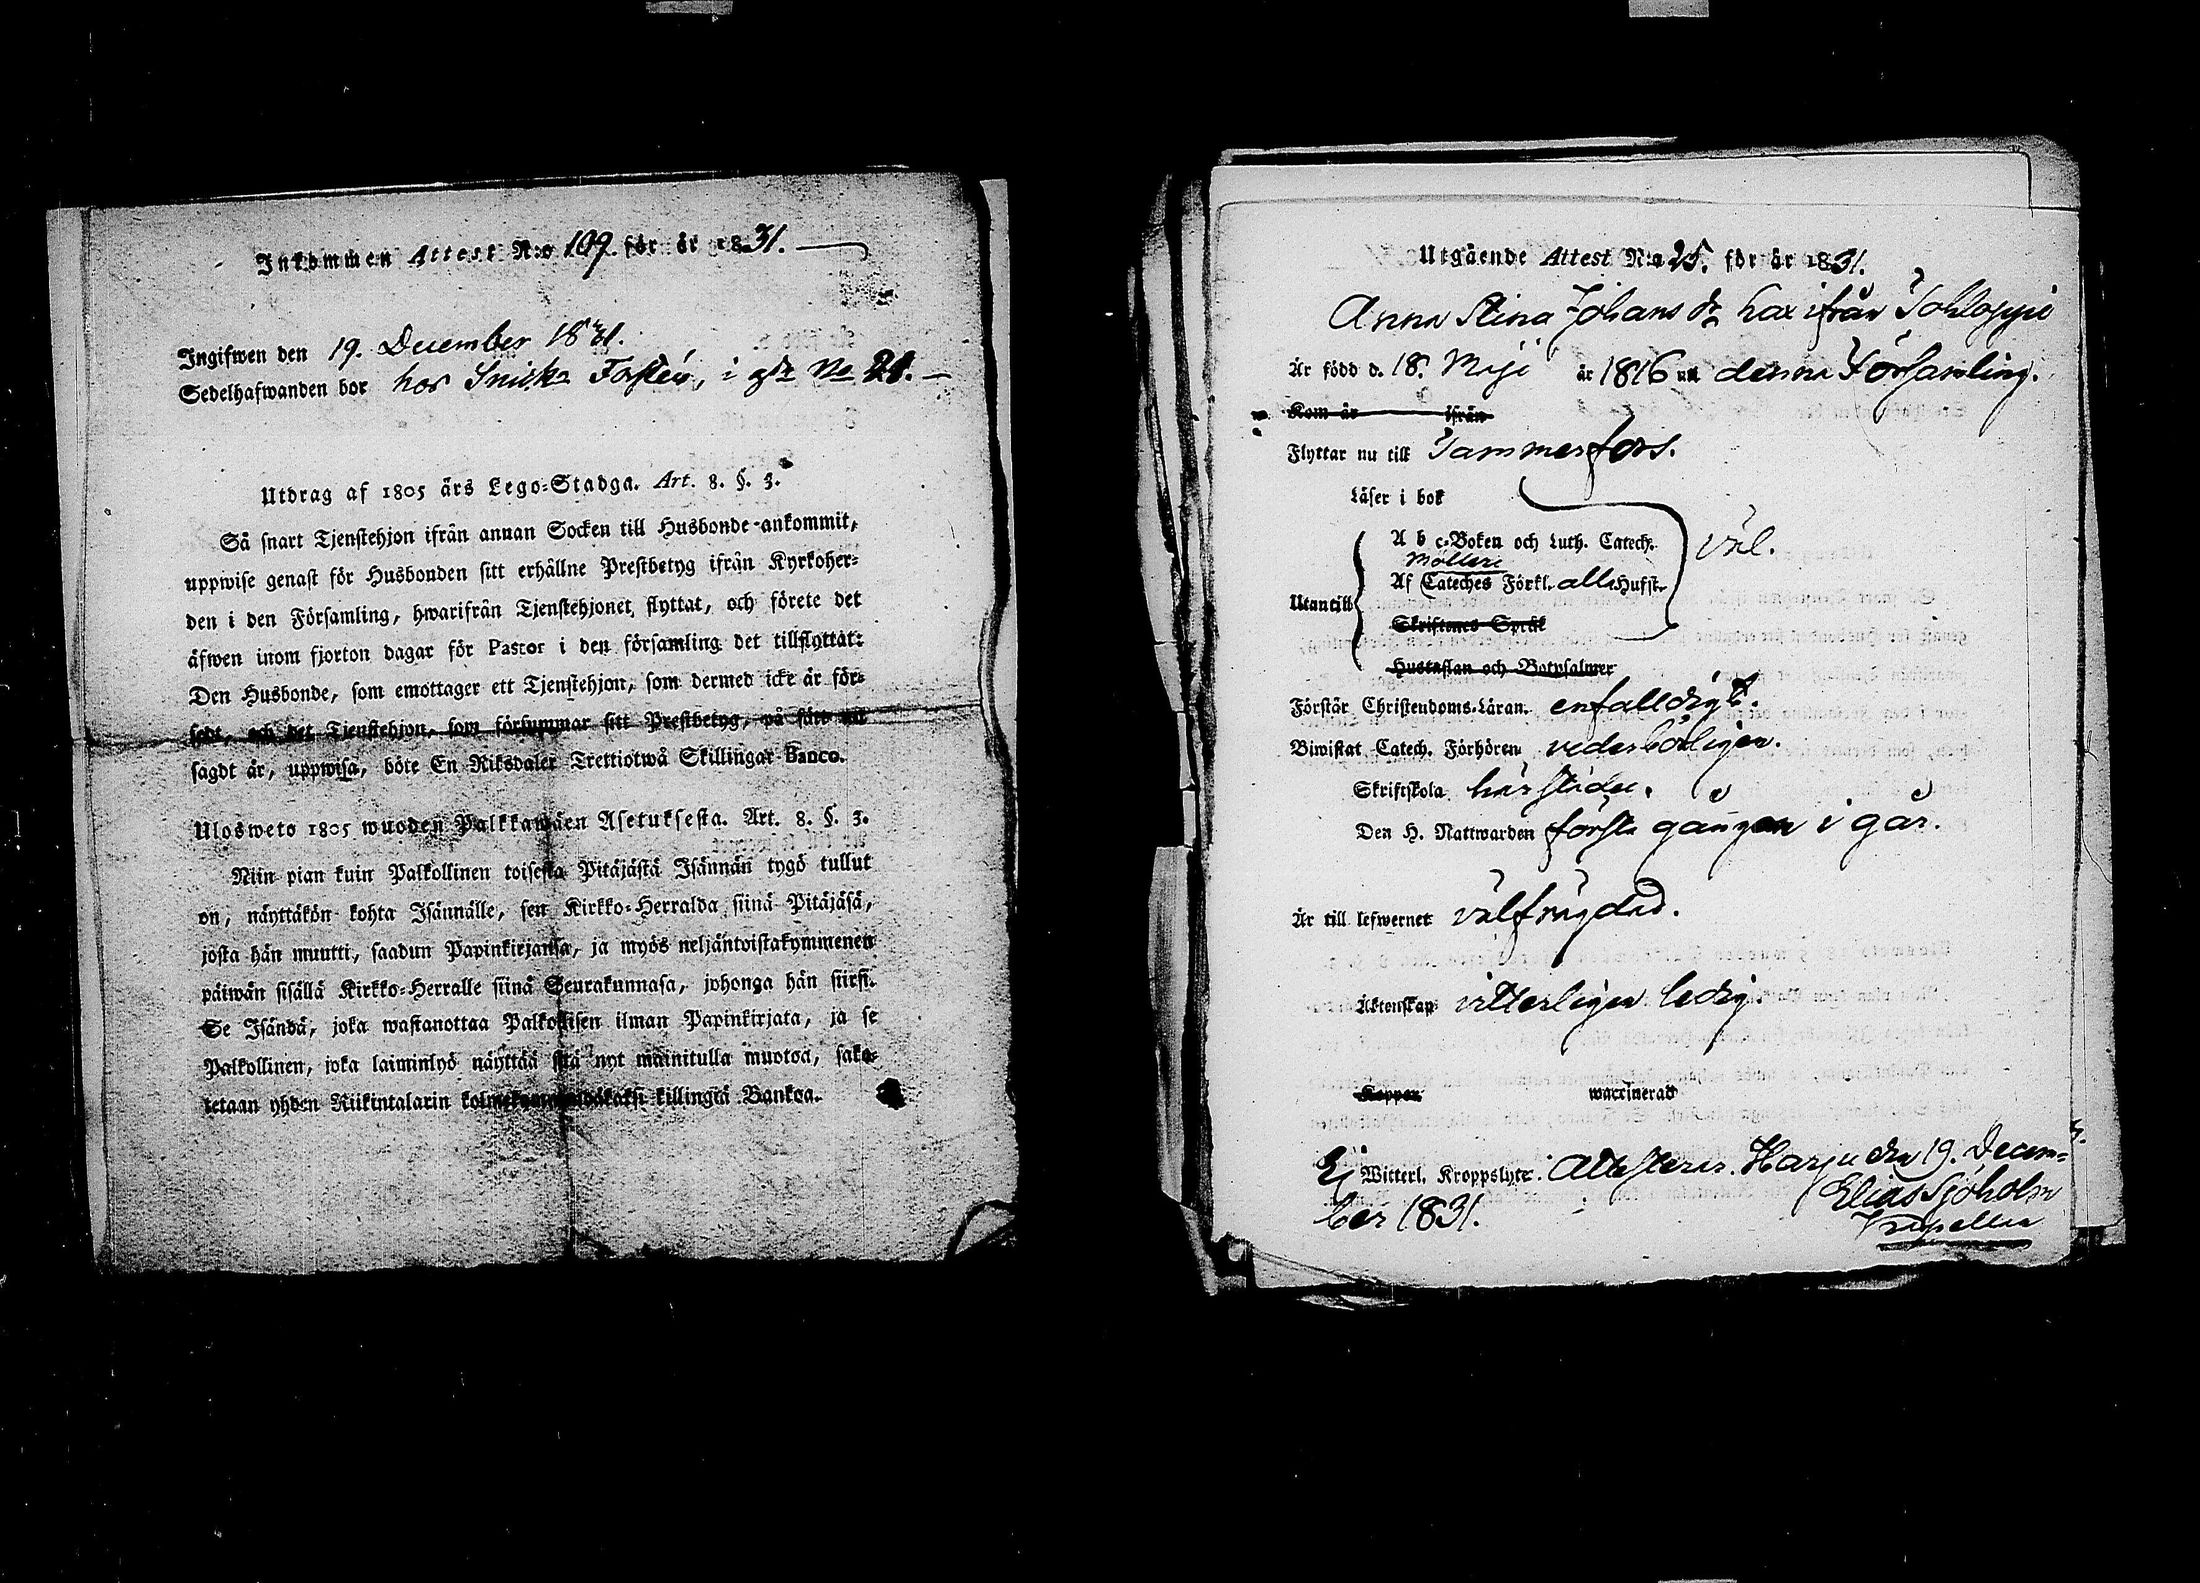 Inkommen Attest N:o 109. för år 1831.
Ingifwen den 19. December 1831.
Sedelhafwanden bor hos Snick. Fasten, i gdn No 21.
Utdrag af 1805 års Lego-Stadga. Art. 8. §. 3.
Så snart Tjenstehjon ifrån annan Socken till Husbonde ankommit,
uppwise genast för Husbonden sitt erhållne Prestbetyg ifrån Kyrkoher-
den i den Församling, hwarifrån Tjenstehjonet flyttat, och förete det
äfwen inom fjorton dagar för Pastor i den församling det tillflyttat:
Den Husbonde, som emottager ett Tjenstehjon, som dermed icke är för-
sedt, och det Tjenstehjon, som försummar sitt Prestbetyg, på sätt nu
sagdt är, uppwisa, böte En Riksdaler Trettiotwå Skillingar Banco.
Ulosweto 1805 wuoden Palkkawäen Asetuksesta. Art. 8. §. 3.
Niin pian kuin Palkollinen toisesta Pitäjästä Isännän tygö tullut
on, näyttäkön kohta Isännälle, sen Kirkko-Herralda siinä Pitäjäsä,
josta hän muutti, saadun Papinkirjansa, ja myös neljäntoistakymmenen
päiwän sisällä Kirkko-Herralle siinä Seurakunnasa, johonga hän siirsi.
Se Isändä, joka wastanottaa Palkollisen ilman Papinkirjata, ja se
Palkollinen, joka laiminlyö näyttää sitä nyt mainitulla muotoa, sako-
tetaan yhden Riikintalarin kolmekymmendäkaksi killingiä Bankoa.
Utgående Attest N:o 25. för år 1831.
Anna Stina Johans dr här ifrån Tohloppi
Är född d. 18. Maji år 1816 uti denna Församling.
Kom år ifrån
Flyttar nu till Tammerfors.
Läser i bok
A b c-Boken och Luth. Catech. väl.
Möllers
Utantill Af Cateches Förkl. alla Hufst.
Skriftenes Språk
Hustaflan och Botpsalmer
Förstår Christendoms-Läran enfalldigt.
Biwistat Catech. Förhören vederbörligen.
Skriftskola härstädes.
Den H. Nattwarden första gången i går.
Är till lefwernet välfrägdad.
Äktenskap vitterligen ledig.
Koppor waccinerad
Ej Witterl. Kroppslyte. Attesterer. Harju den 19. Decem-
ber 1831. Elias Sjöholm
Kapellan